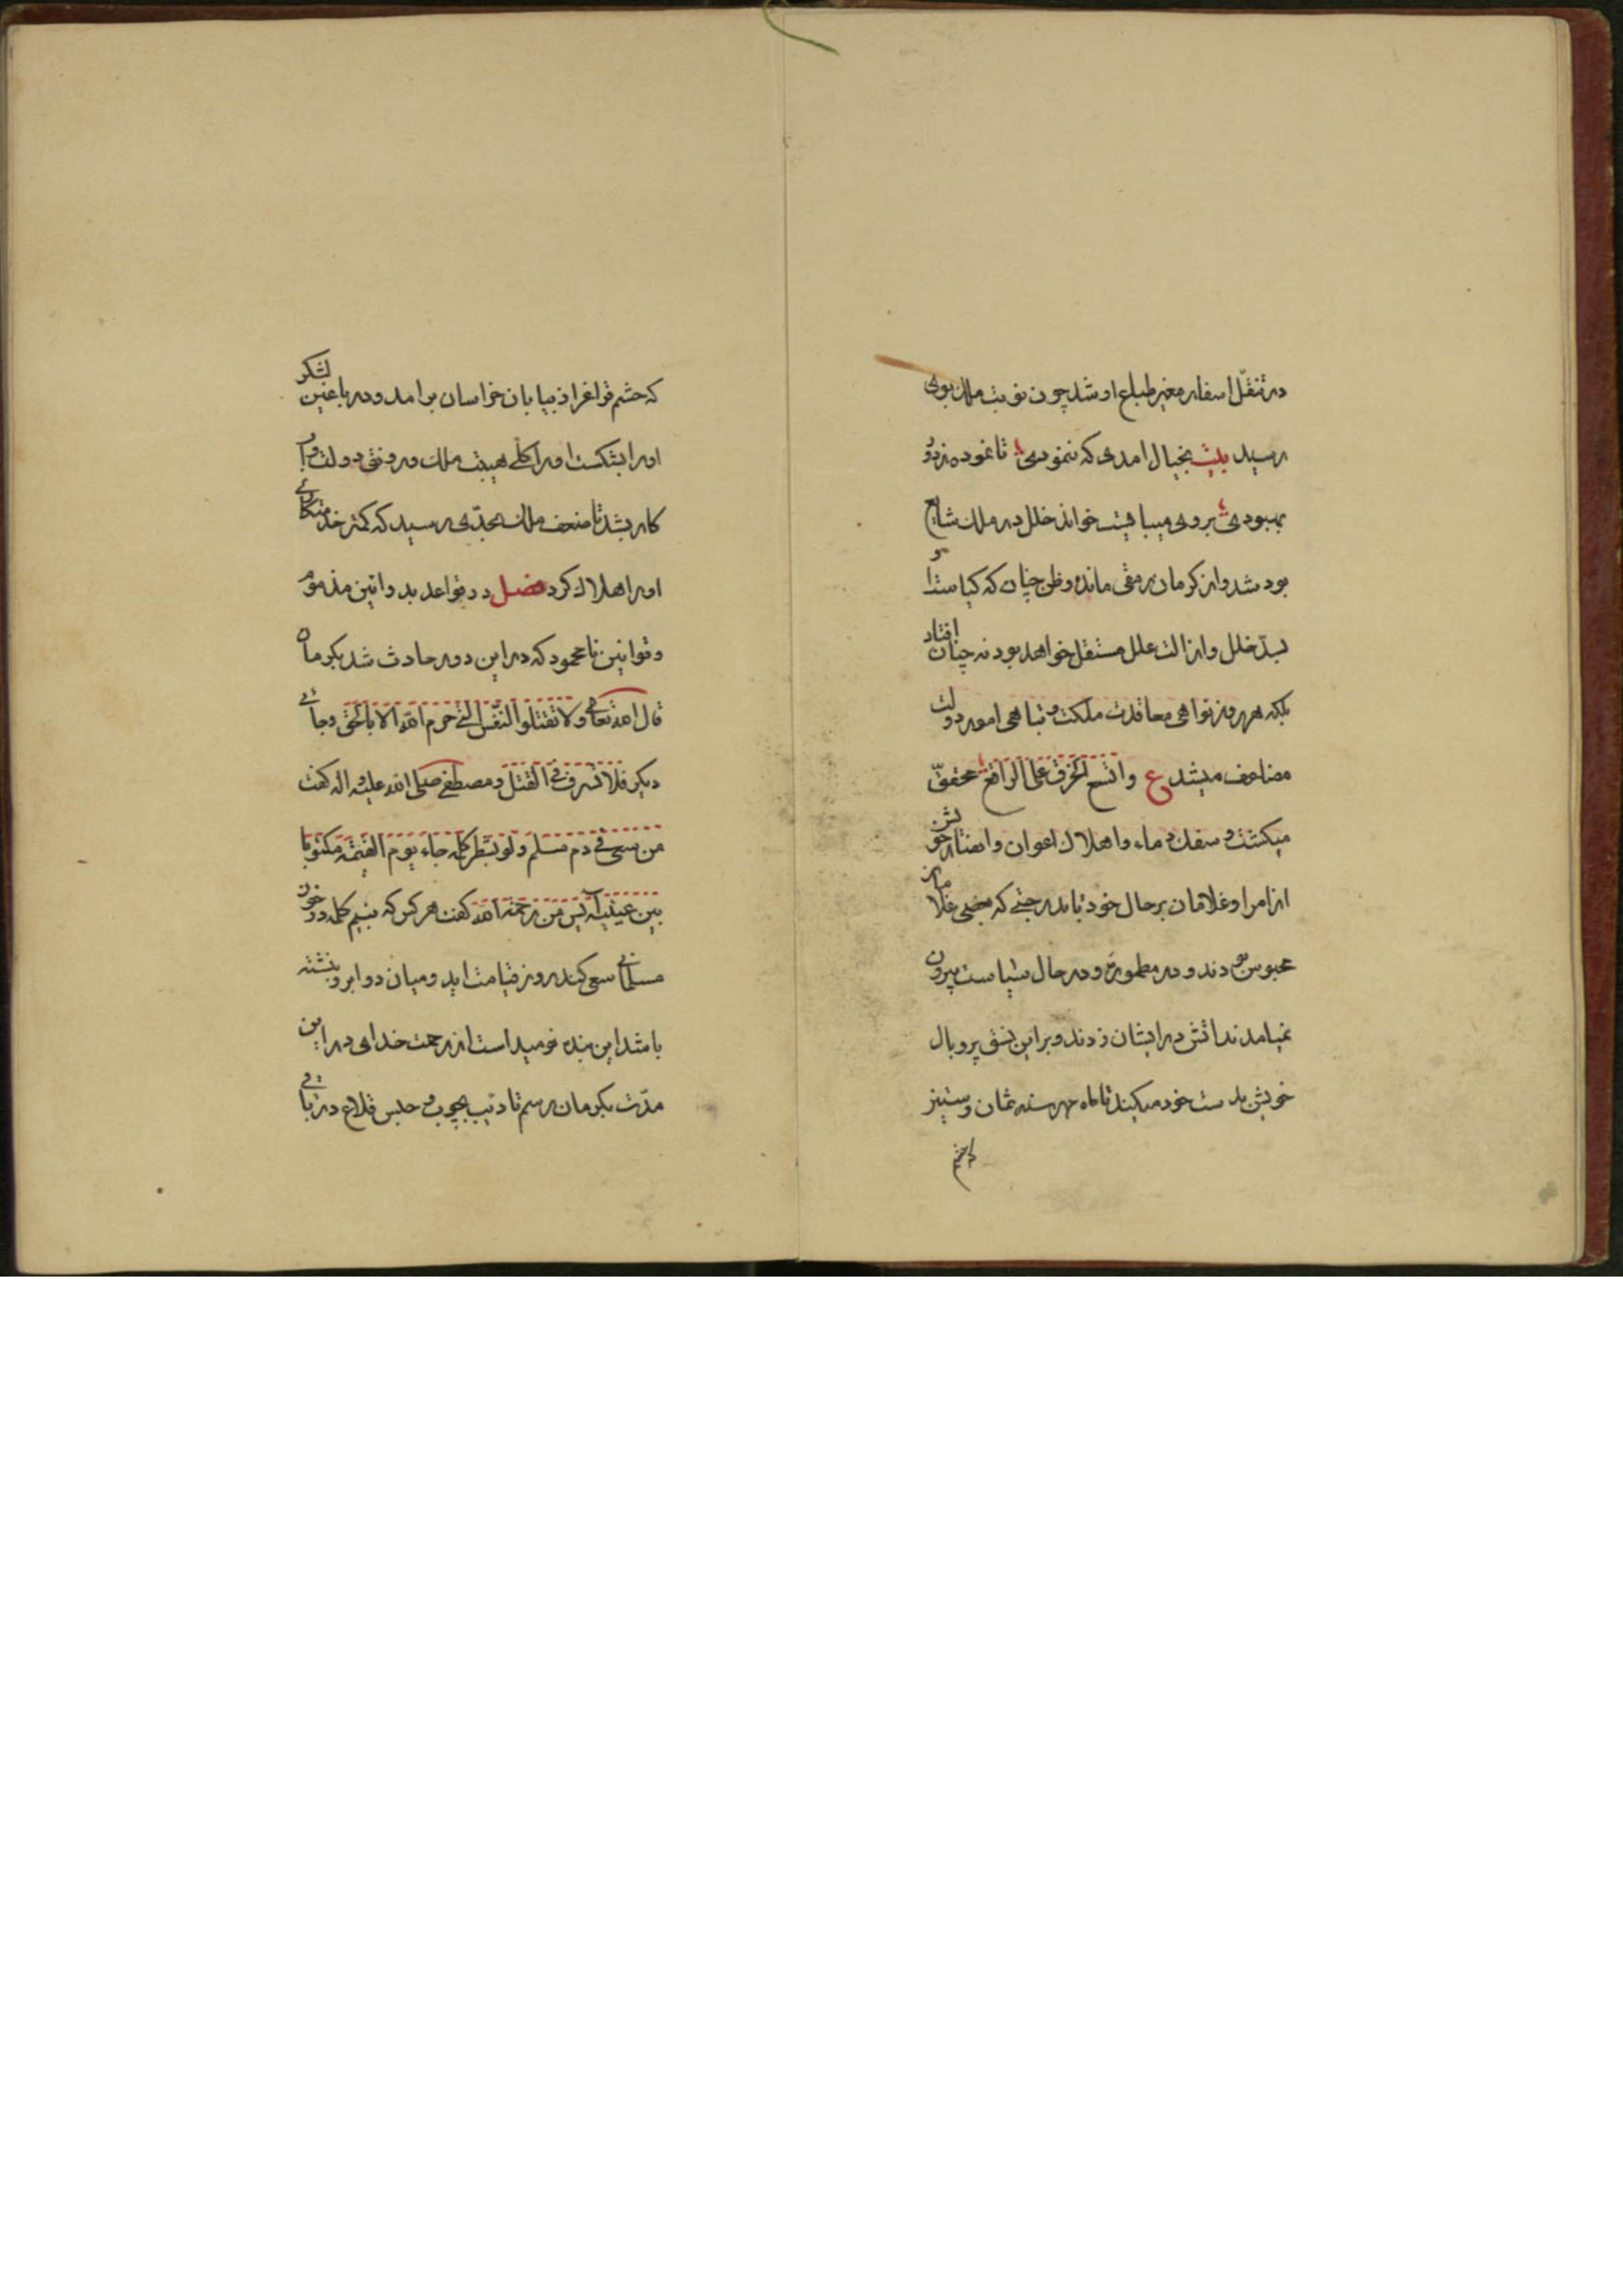 در تنقّل اسفار مغیر طباع او شد چون نوبت ملک بوی
رسید بیت بخیال امدی که ننمودی تا نموده نزدود
بهبودی بروی میبایست خواند خلل در ملک شایع
بود شد و از کرمان رمقی مانده و ظن چنان که کیاست او
بسدّ خلل و ازالت علل مستقل خواهد بود نه چنان افتاد
بلکه هر روز نواهی معاقدت مملکت و تباهی امور دولت
مضاعف میشد ع واتسع الخرق علی الراقع محقق
میکشت و سفک دماء و اهلاک اعوان و انصار خویش
از امرا و غلامان بر حال خود تا بدر جنی که بعضی غلامان
محبوس بودند و در مطموره و در حال سیاست بیرون
نمیامدند اتش در ایشان زدند و بر این نسق پر و بال
خویش بدست خود میکند تا ماه مهر سنه ثمان و ستین
که حشم
که حشم قرا غز از بیابان خراسان برامد و در باغین لشکر
او را بشکست او را کلی هیبت ملک و رونق دولت و آب
کار بشد تا ضعف ملک بحدّی رسید که کمتر خدمتکاری
او را هلاک کرد فصل در قواعد بد و ائین مذموم
و قوانین نامحمود که در این دور حادث شد بکرمان
قال الله تعالی ولا تقتلوا النفس التی حرم الله الا بالحق و جائی
دیکر فلا تسرف فی القتل و مصطفی صلی الله علیه و اله کفت
من سعی فی دم مسلم ولو بشطر کلمه جاء یوم القیمه مکتوبا
بین عینیه آیس من رحمة الله کفت هر کس که بنیم کلمه در خون
مسلمانی سعی کند روز قیامت اید و میان دو ابرو نبشته
باشد این بنده نومید است از رحمت خدای در این
مدّت بکرمان رسم تادیب بچوب و حبس قلاع در باقی